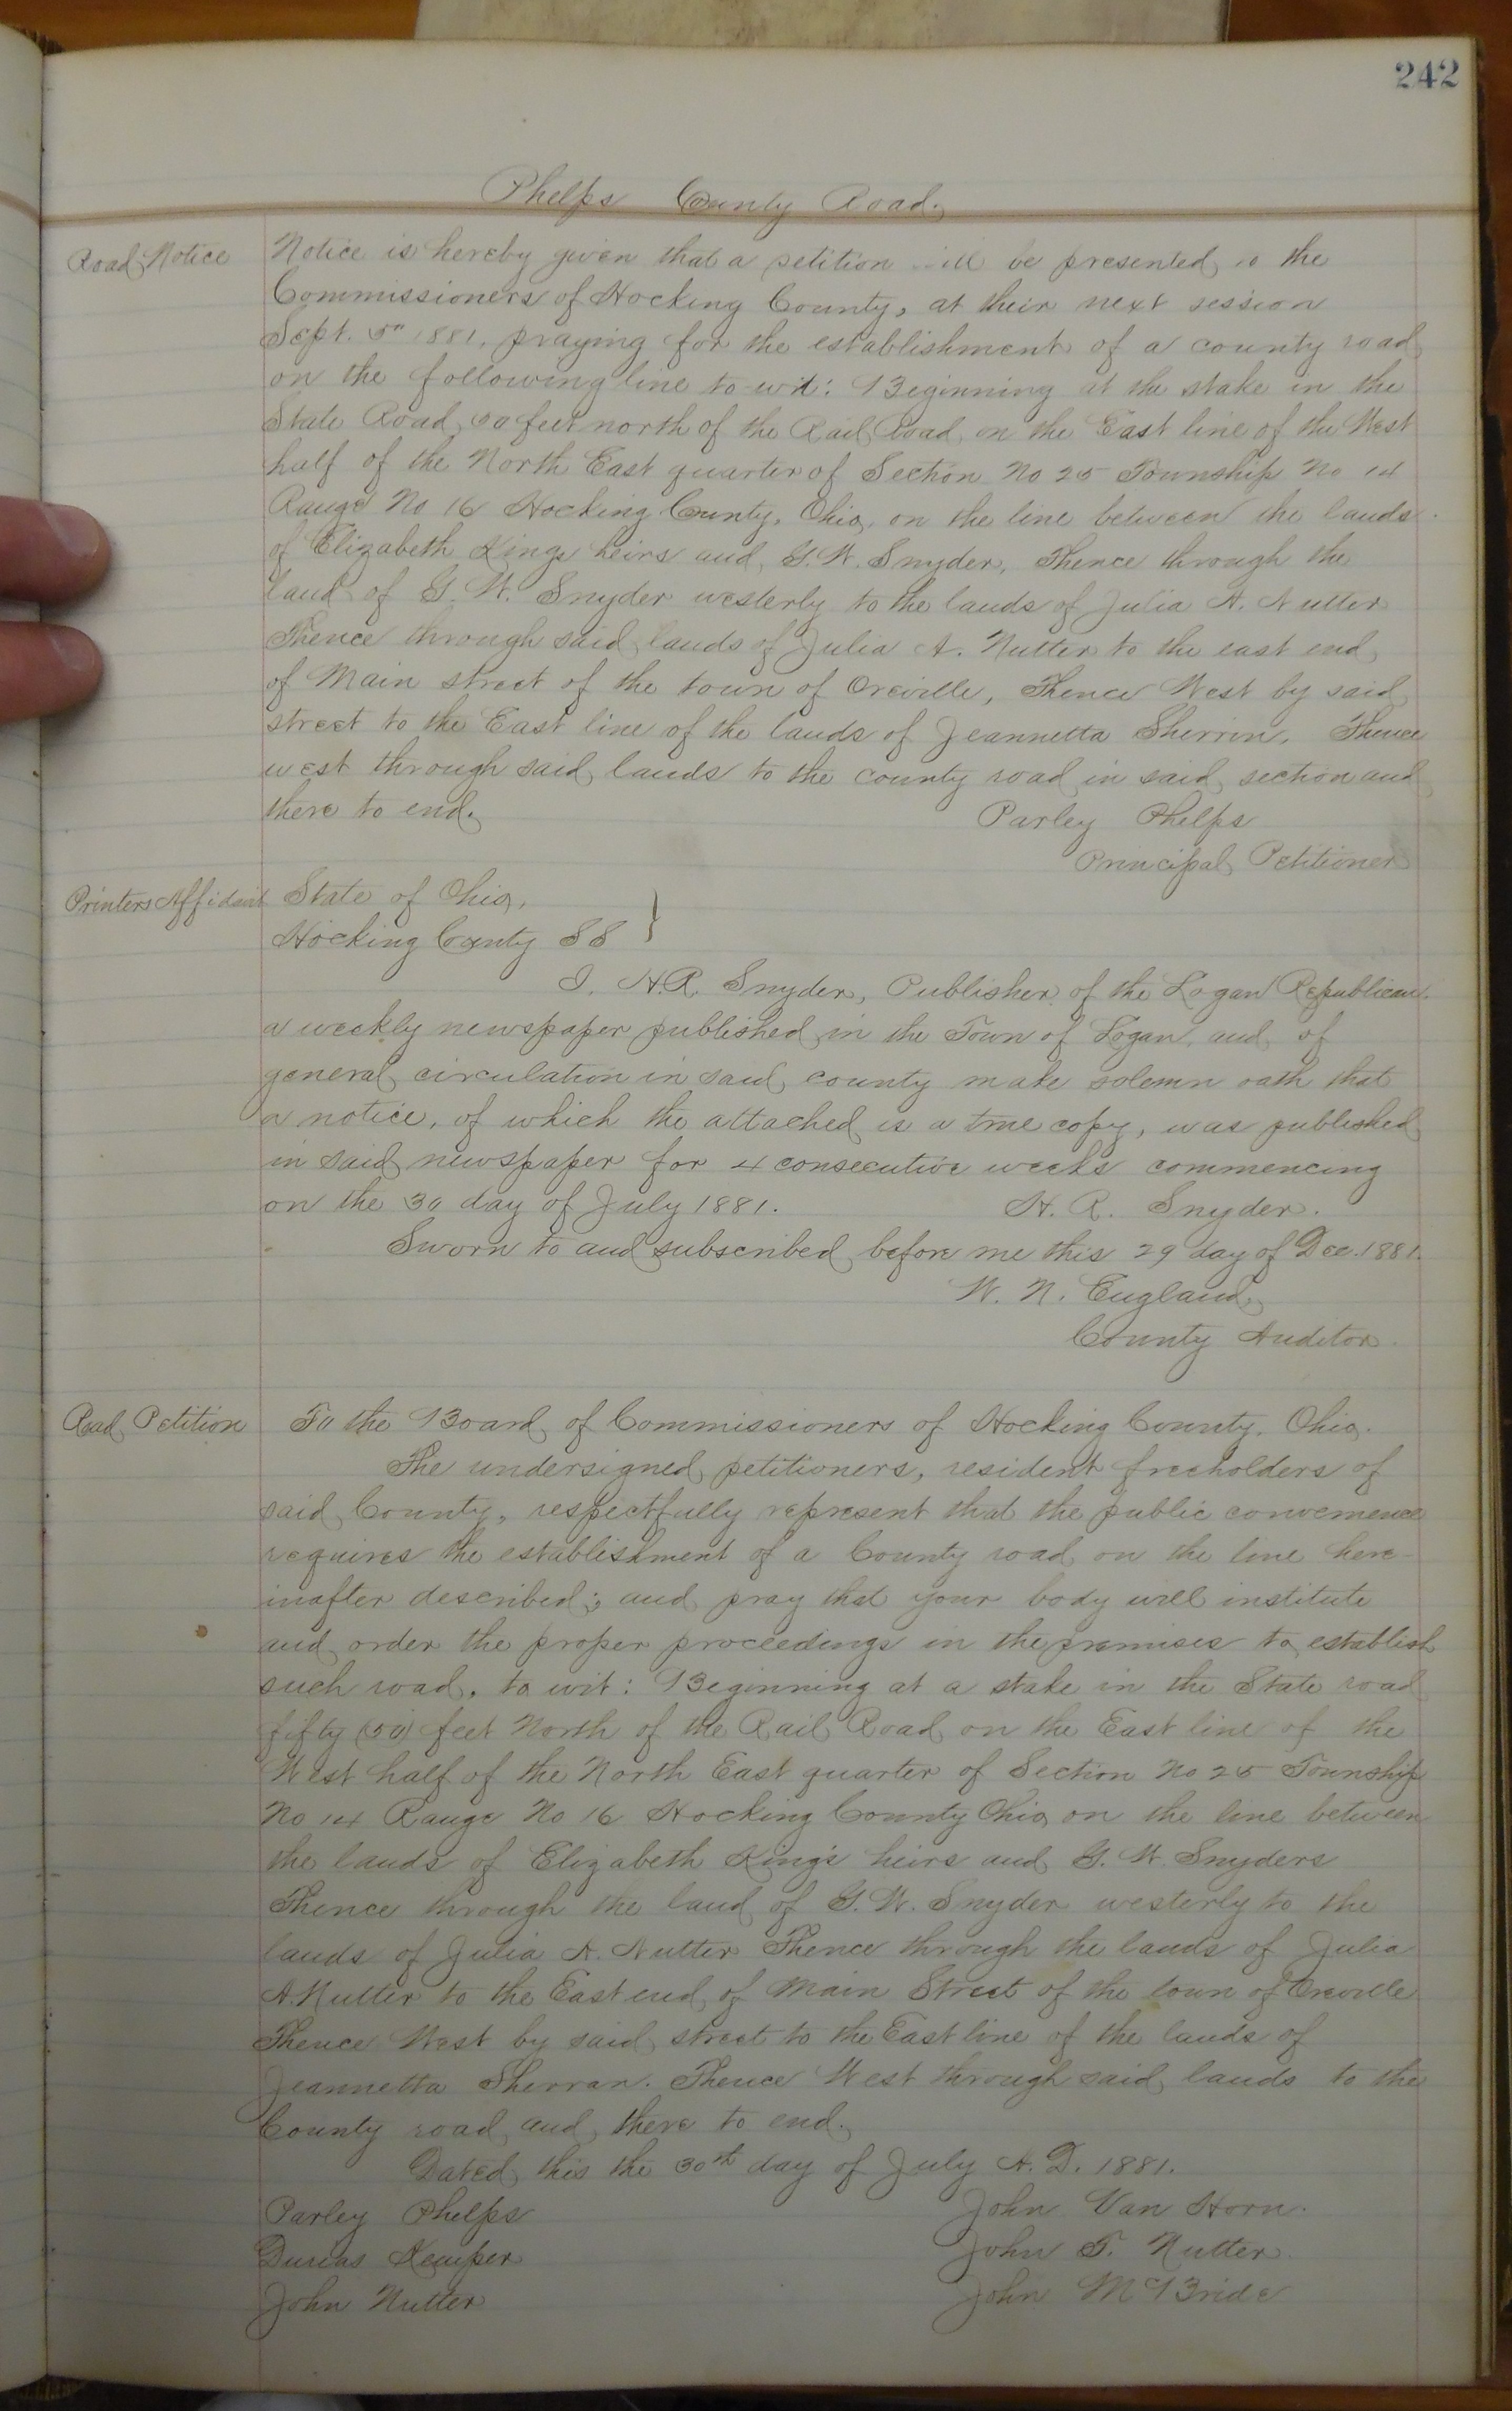 242
Phelps County Road.
Road Notice
Notice is hereby given that a petition will be presented to the
Commissioners of Hocking County, at their next session
Sept. 5th 1881, praying for the establishment of a county road
on the following line to-wit: Beginning at the stake in the
State Road 50 feet north of the Rail Road on the East line of the West
half of the North East quarter of Section No 25 Township No 14
Range No 16 Hocking County, Ohio, on the line between the lands
of Elizabeth Kings heirs and G. W. Snyder, Thence through the
land of G. W. Snyder westerly to the lands of Julia A. Nutter
Thence through said lands of Julia A. Nutter to the east end
of Main street of the town of Oreville, Thence West by said
street to the East line of the lands of Jeannetta Sherrin, Thence
west through said lands to the county road in said section and
there to end.
Parley Phelps
Principal Petitioner
Printers Affidavit
State of Ohio,
Hocking County SS }
I, H. R. Snyder, Publisher of the Logan Republican
a weekly newspaper published in the Town of Logan, and of
general circulation in said county make solemn oath that
a notice, of which the attached is a true copy, was published
in said newspaper for 4 consecutive weeks commencing
on the 30 day of July 1881.
H. R. Snyder.
Sworn to and subscribed before me this 29 day of Dec. 1881.
W. N. England,
County Auditor.
Road Petition
To the Board of Commissioners of Hocking County, Ohio.
The undersigned petitioners, resident freeholders of
said County, respectfully represent that the public convenience
requires the establishment of a County road on the line here-
inafter described; and pray that your body will institute
and order the proper proceedings in the premises to establish
such road, to wit: Beginning at a stake in the State road
fifty (50) feet North of the Rail Road on the East line of the
West half of the North East quarter of Section No 25 Township
No 14 Range No 16 Hocking County Ohio on the line between
the lands of Elizabeth King's heirs and G. W. Snyders
Thence through the land of G. W. Snyder westerly to the
lands of Julia A. Nutter Thence through the lands of Julia
A. Nutter to the East end of Main Street of the town of Oreville
Thence West by said street to the East line of the lands of
Jeannetta Sherran. Thence West through said lands to the
County road and there to end.
Dated this the 30th day of July A. D. 1881.
Parley Phelps
John Van Horn.
Kemper
John T. Nutter.
John Nutter
John McBride